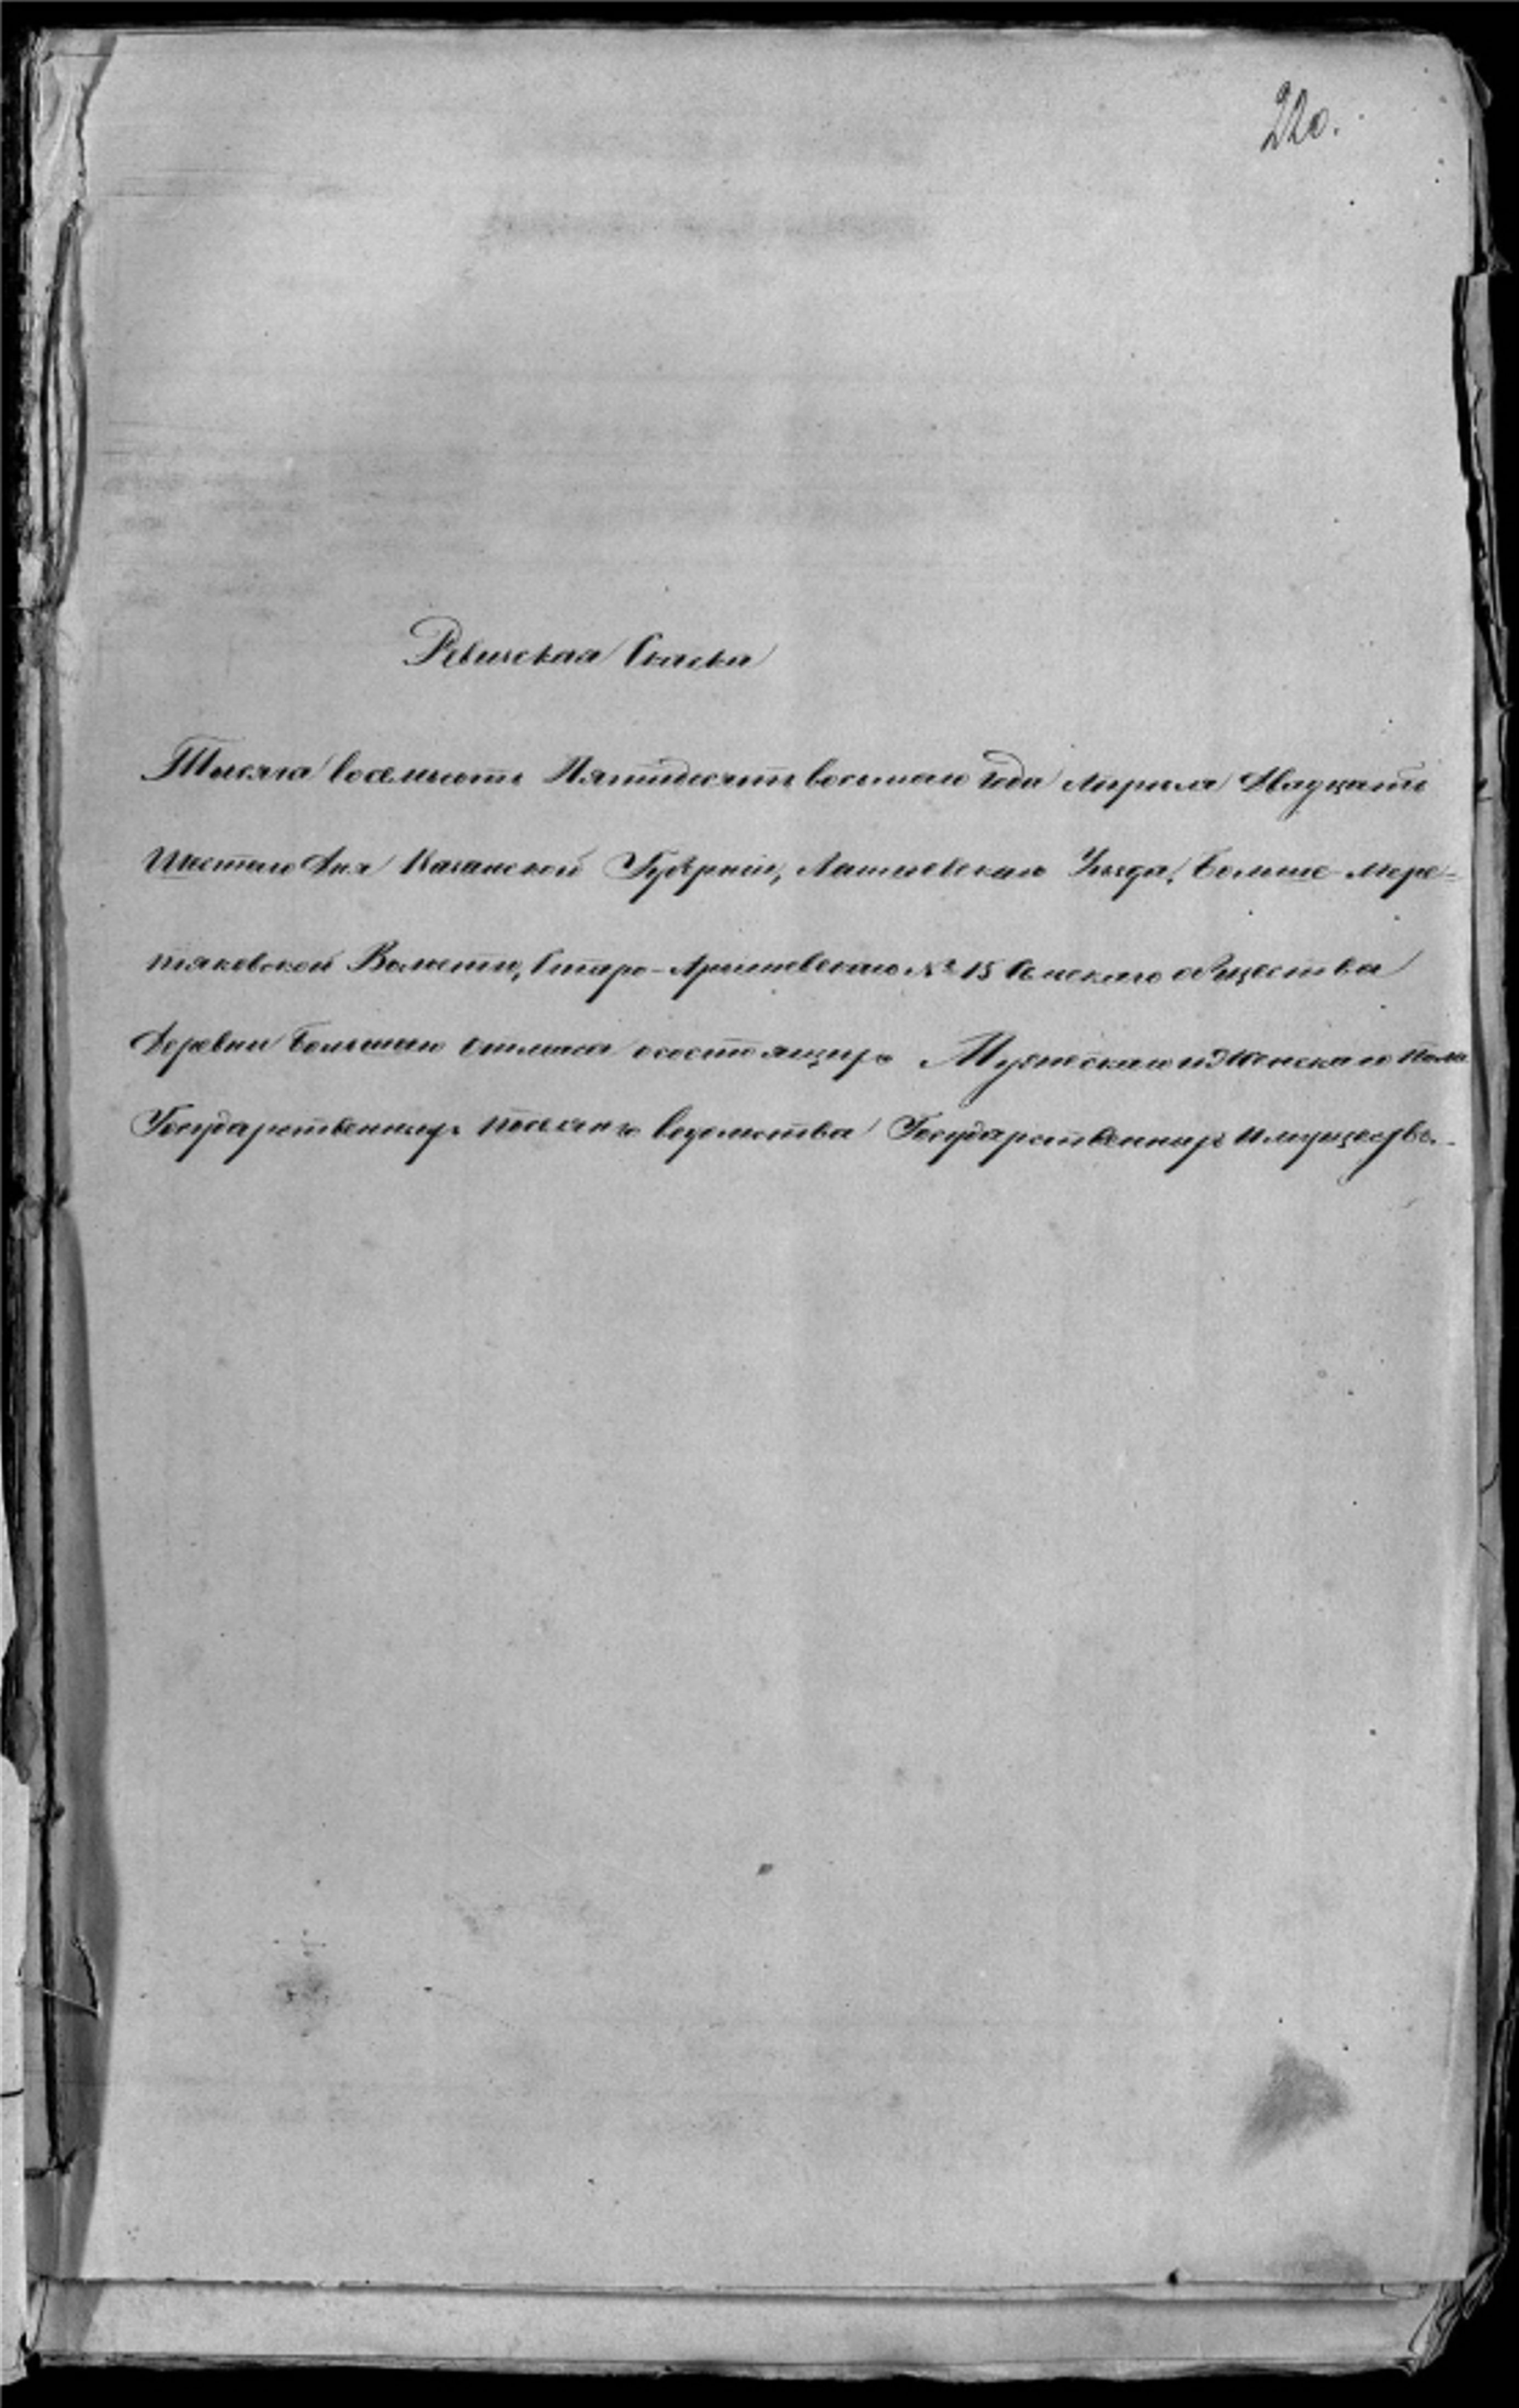 220.
Ревизская Сказка
Тысяча восемьсотъ Пятидесятъ восьмаго Года Апреля Двадцать
Шестаго Дня Казанской Губерніи, Лаишевскаго Уезда, Больше-Мере-
тяковской Волости, Старо-Арышевскаго № 15 Сельскаго общества
Деревни Большаго о состоящихъ Мужескаго и Женскаго пола
Государственныхъ поселянъ ведомства Государственныхъ Имуществъ.